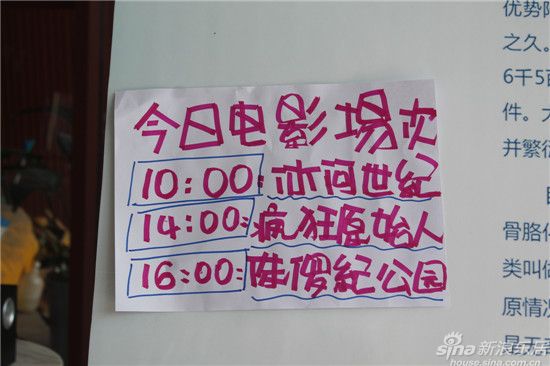 今日电影场次
10:00:冰河世纪
14:00:疯狂原始人
16:00:侏㑩纪公园
优势
之久。
6千5百
件。
并繁衍
骨骼
类叫做
原情况
sina新浪乐居
house.sina.com.cn